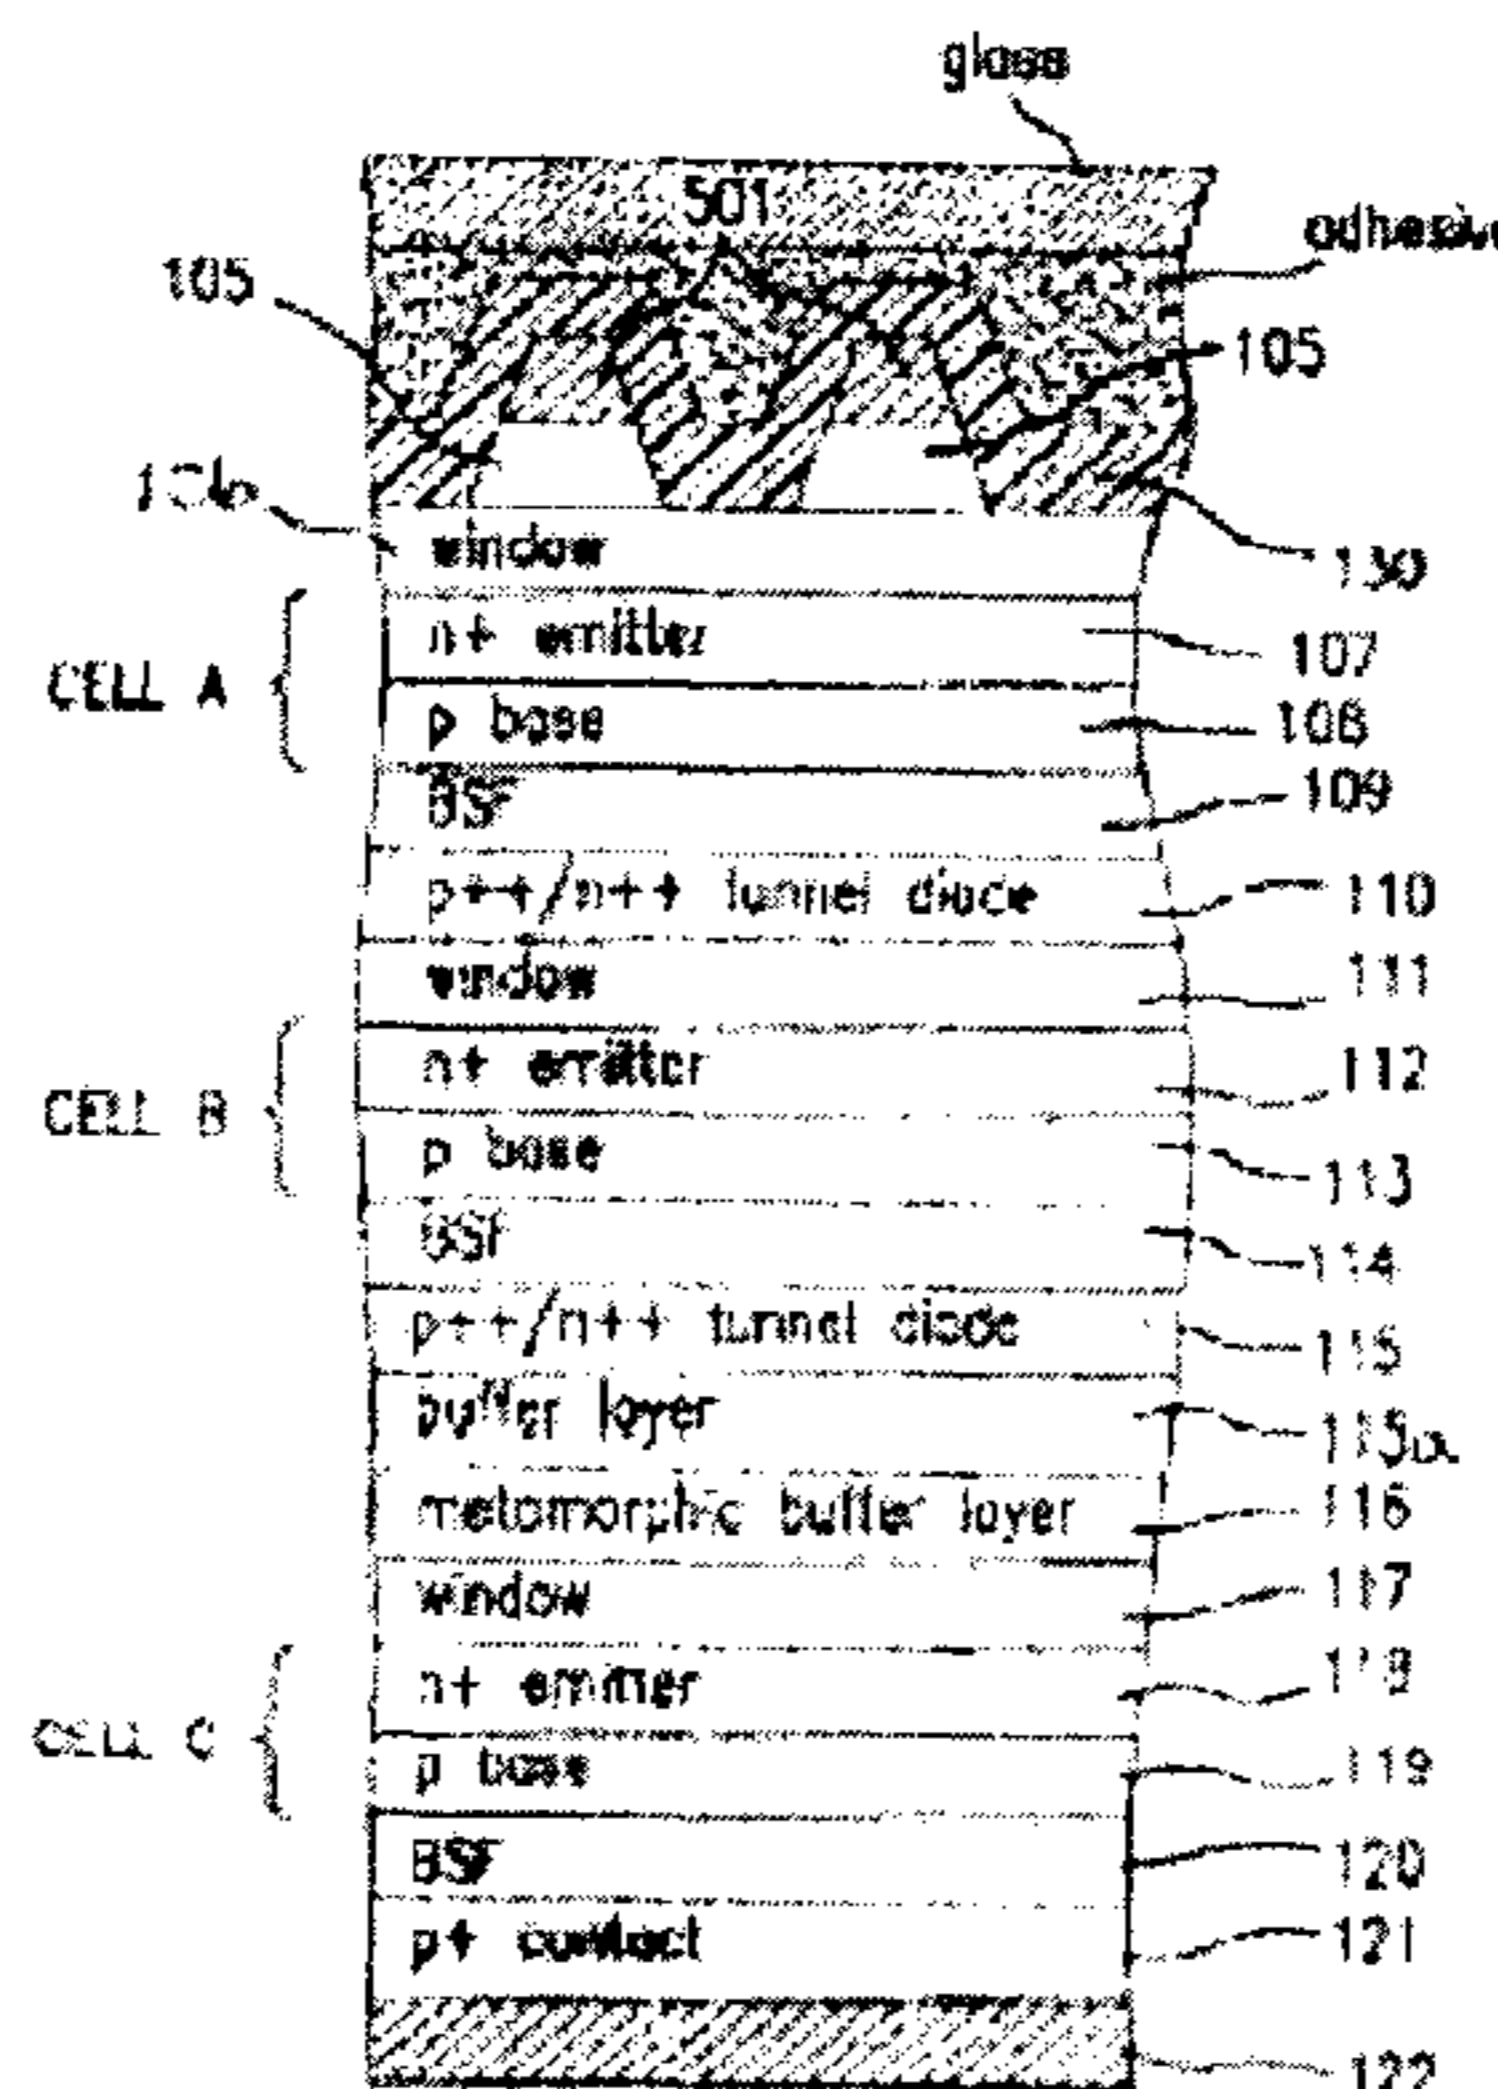 glass
501
adhesive
105
105
window
130
n+ emitter
107
CELL A
p base
108
BSF
109
p++/n++ tunnel diode
110
window
111
n+ emitter
112
CELL B
p base
113
BSF
114
p++/n++ tunnel diode
115
buffer layer
115a
metamorphic buffer layer
116
window
117
n+ emitter
118
CELL C
p base
119
BSF
120
p+ contact
121
122